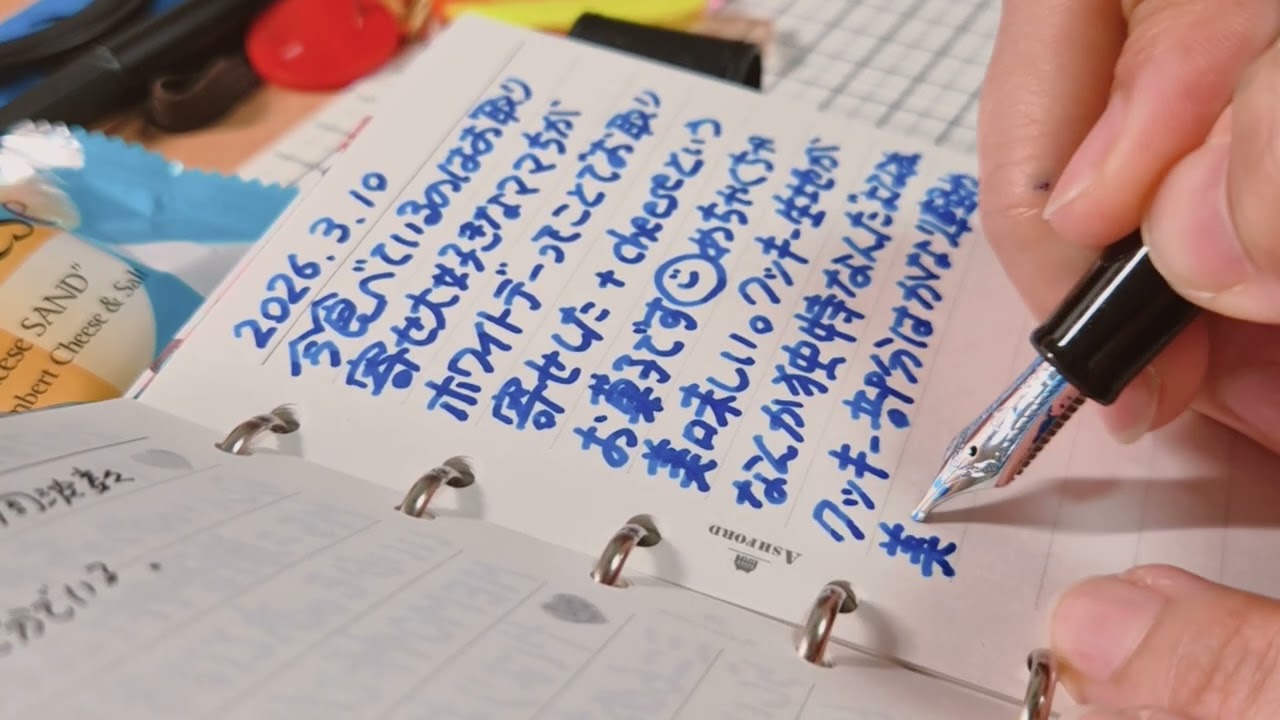 2026.3.10
今食べているのはお取り
寄せ大好きなママちが
ホワイトデーってことでお取り
寄せした + cheeseという
お菓子です☺めちゃくちゃ
美味しい。クッキー生地が
なんか独特なんだよね
クッキー部分はかなり
美
ASHFORD
ese SAND"
mbert Cheese & Sal
ている.